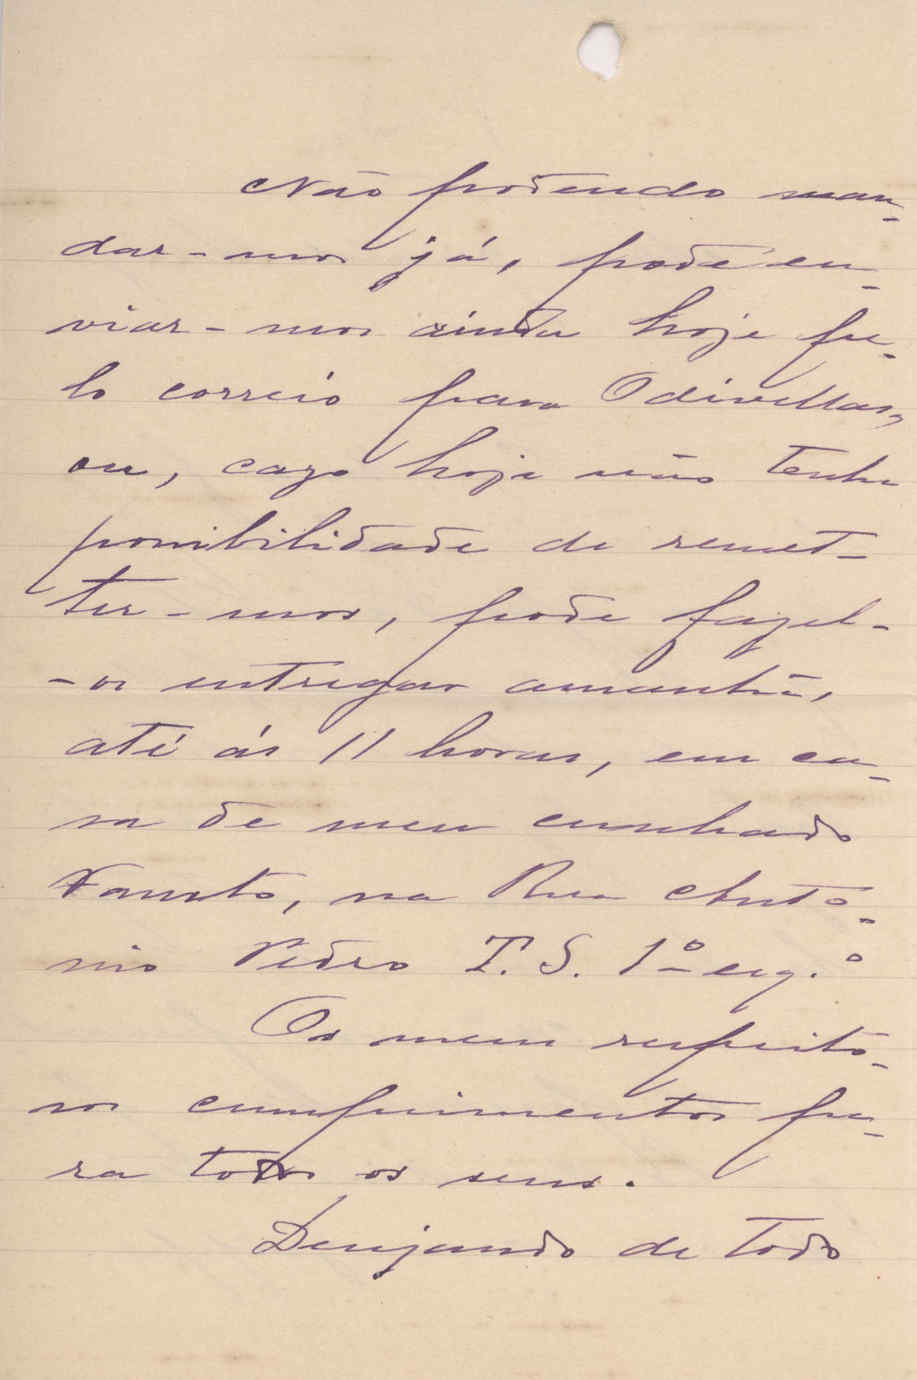 Não podendo man-
dar-mos já, pode en-
viar-mos ainda hoje pe-
lo correio para Odivellas,
ou, cazo hoje não tenha
possibilidade de remet-
ter-mos, pode fazel-
-os entregar amanhã,
até ás 11 horas, em ca-
sa de meu cunhado
Fausto, na Rua Antó-
nio Pedro T. S. 1º esq.º
Os meus respeito-
sos cumprimentos pa-
ra todos os seus.
Desejando de todo